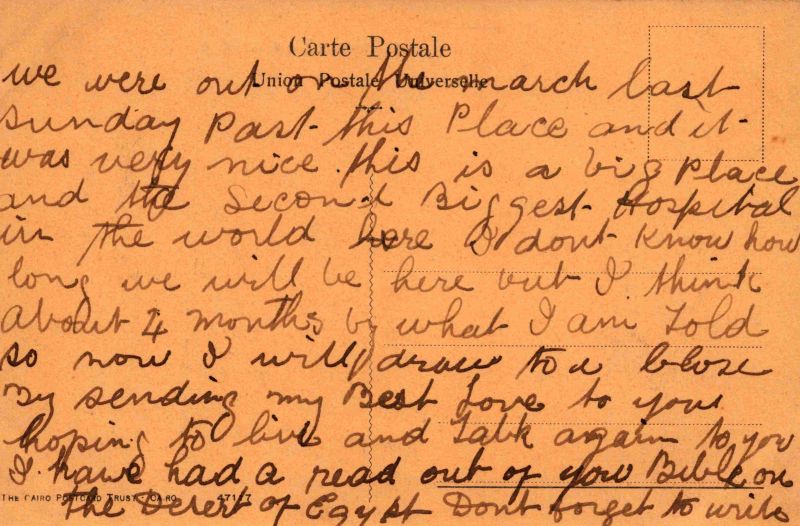 Carte Postale
Union Postale Universelle
we were out on the march last
sunday Past this Place and it
was very nice this is a big Place
and the Second Biggest Hospital
in the world here I dont Know how
long we will be here but I think
about 4 months by what I am Told
so now I will draw to a close
By sending my Best Love to you
hoping to live and Talk again to you
I have had a read out of you Bible on
The Desert of Egypt Dont forget to write
THE CAIRO POSTCARD TRUST - CAIRO. 47117